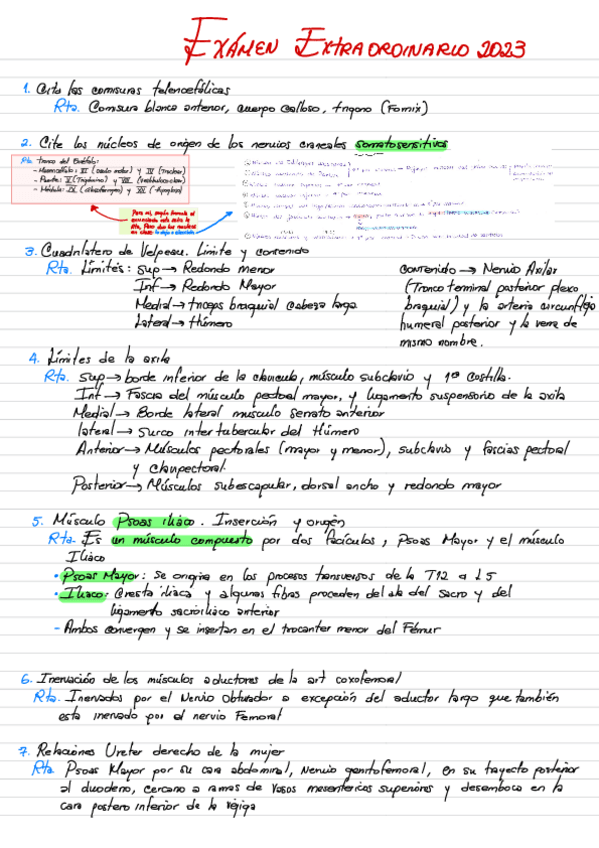 EXÁMEN EXTRAORDINARIO 2023
1. Cita las comisuras telencefálicas
Rta. Comisura blanca anterior, cuerpo calloso, trígono (Fornix)
2. Cite los núcleos de origen de los nervios craneales somatosensitivos
Rta. tronco del Encéfalo:
- Mesencéfalo: III (oculo motor) y IV (troclear)
- Puente: V (Trigémino) y VIII (vestibulococlear)
- Médula: IX (Glosofaríngeo) y
3. Cuadrilátero de Velpeau. Límite y contenido
Rta. Límites: Sup → Redondo menor
Inf → Redondo Mayor
Medial → triceps braquial cabeza larga
Lateral → Húmero
contenido → Nervio Axilar
(Tronco terminal posterior plexo
braquial) y la arteria circunfleja
humeral posterior y la vena de
mismo nombre.
4. Límites de la axila
Rta. Sup → borde inferior de la clavícula, músculo subclavio y 1ra Costilla.
Inf → Fascia del músculo pectoral mayor, y ligamento suspensorio de la axila
Medial → Borde lateral musculo serrato anterior
lateral → Surco intertubercular del Húmero
Anterior → Músculos pectorales (mayor y menor), subclavio y fascias pectoral
y clavipectoral.
Posterior → Músculos subescapular, dorsal ancho y redondo mayor
5. Músculo Psoas iliaco. Inserción y origen
Rta. Es un músculo compuesto por dos fascículos, Psoas Mayor y el músculo
Iliaco
• Psoas Mayor: Se origina en los procesos transversos de la T12 a L5
• Iliaco: Cresta iliaca y algunas fibras proceden del ala del sacro y del
ligamento sacroiliaco anterior
- Ambos convergen y se insertan en el trocanter menor del Fémur
6. Inervación de los músculos aductores de la art coxofemoral
Rta. Inervados por el Nervio Obturador a excepción del aductor largo que también
esta inervado por el nervio Femoral
7. Relaciones Ureter derecho de la mujer
Rta. Psoas Mayor por su cara abdominal, Nervio genitofemoral, en su trayecto posterior
al duodeno, cercano a ramas de vasos mesentericos superiores y desemboca en la
cara postero inferior de la vejiga